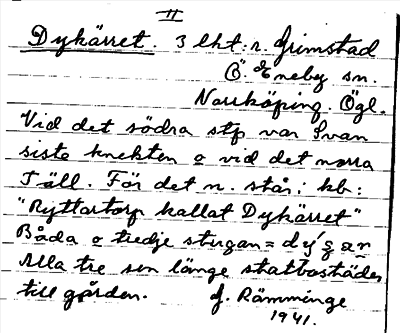 II
Dykärret. 3 lht: n. Grimstad
Ö. Eneby sn.
Norrköping. Ögl.
Vid det södra stp var Svan
siste knekten o vid det norra
Täll. För det n. står i kb:
"Ryttartorp kallat Dykärret"
Båda o tredje stugan =
Alla tre sen länge statbostäder
till gården. J. Rämminge
1941.